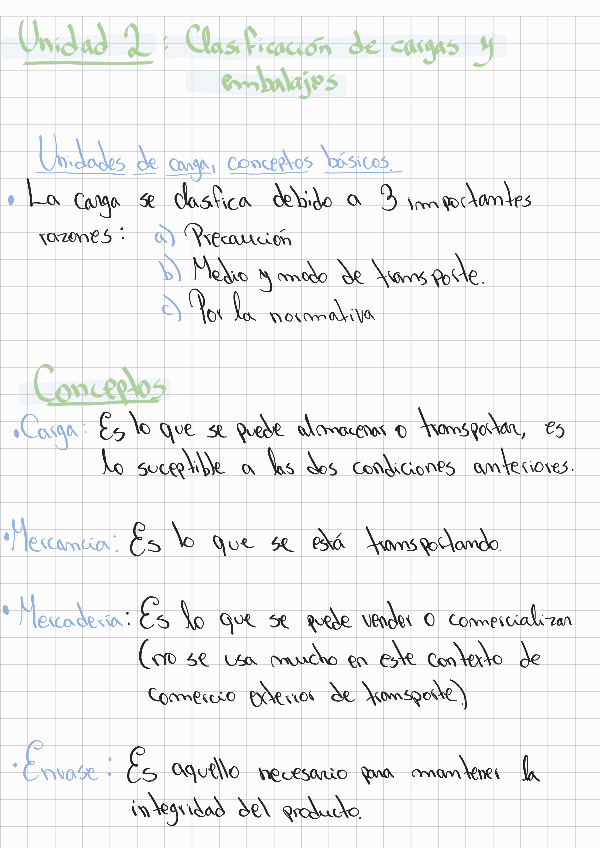 Unidad 2: Clasificación de cargas y
embalajes
Unidades de carga, conceptos básicos.
• La carga se clasifica debido a 3 importantes
razones: a) Precaución
b) Medio y modo de transporte.
c) Por la normativa
Conceptos
• Carga: Es lo que se puede almacenar o transportar, es
lo suceptible a las dos condiciones anteriores.
• Mercancía: Es lo que se está transportando.
• Mercadería: Es lo que se puede vender o comercializar
(no se usa mucho en este contexto de
comercio exterior de transporte)
• Envase: Es aquello necesario para mantener la
integridad del producto.